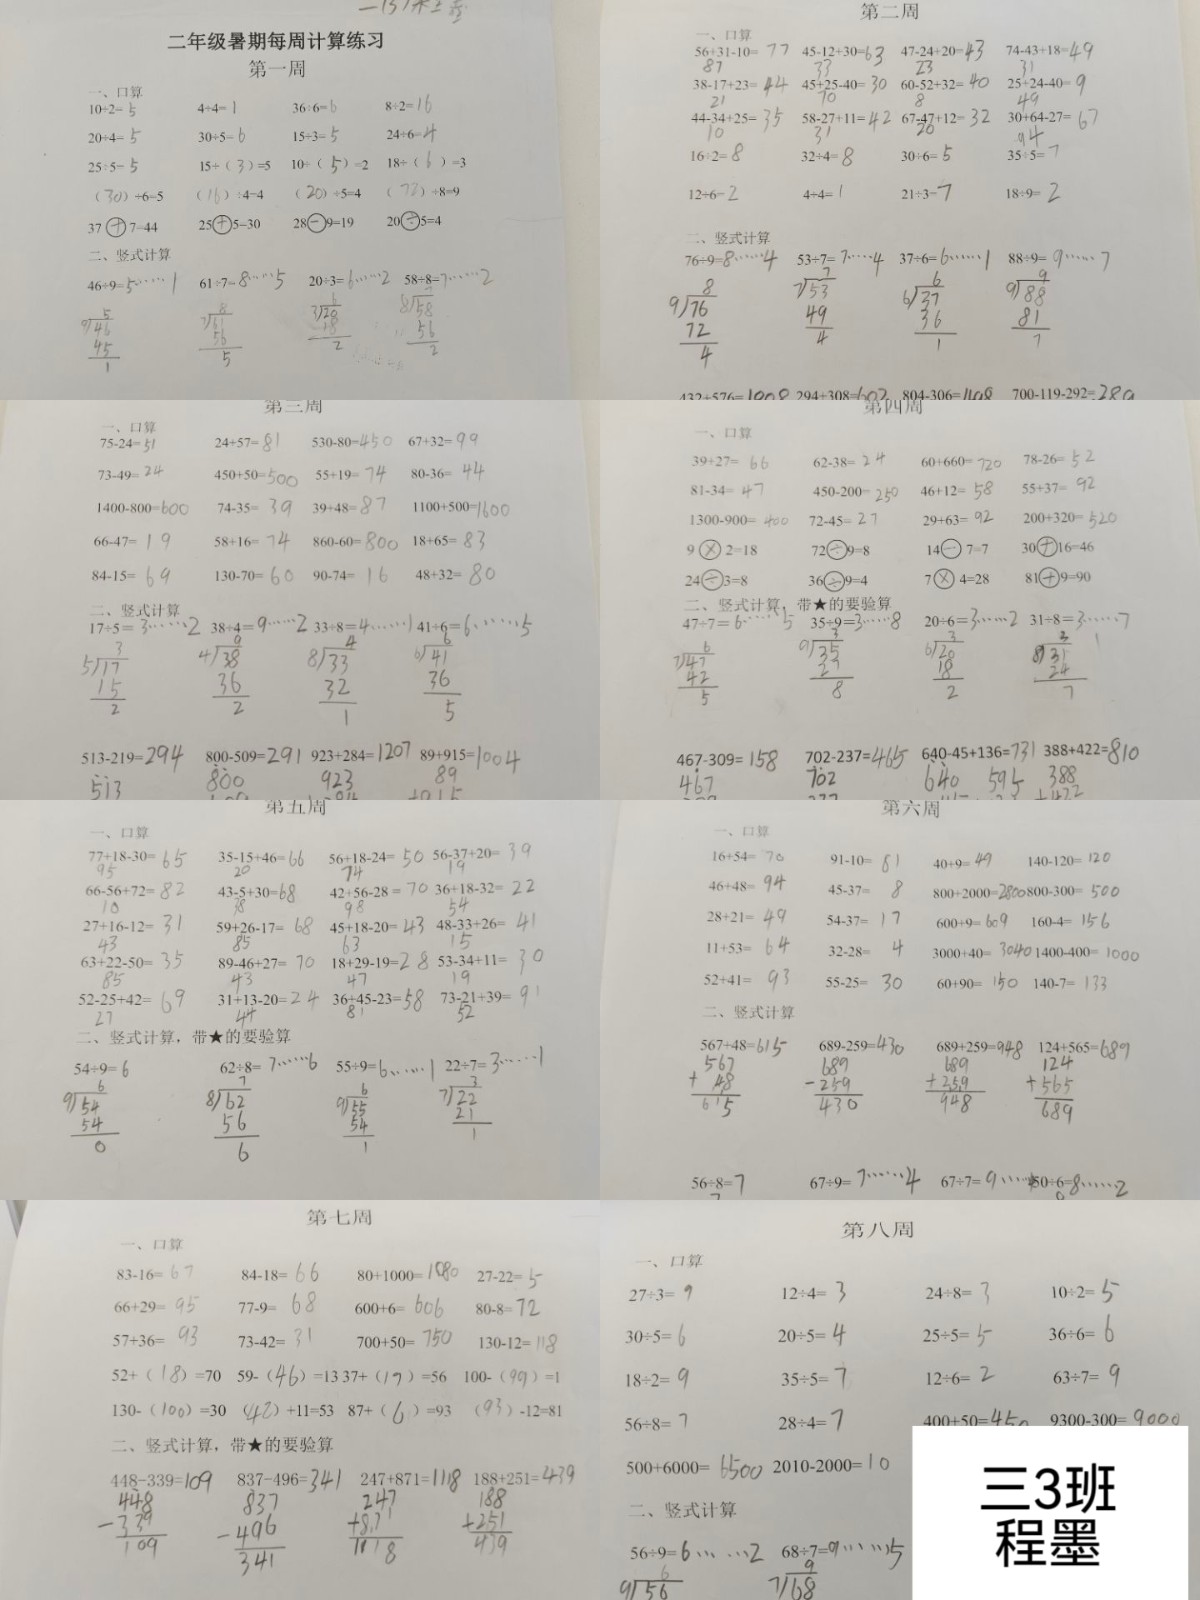 二年级暑期每周计算练习
第一周
一、口算
10÷2= 5 4÷4= 1 36÷6= 6 8÷2= 16
20÷4= 5 30÷5= 6 15÷3= 5 24÷6= 4
25÷5= 5 15÷（3）=5 10÷（5）=2 18÷（6）=3
（30）÷6=5 （16）÷4=4 （20）÷5=4 （72）÷8=9
37 + 7=44 25 + 5=30 28 − 9=19 20 ÷ 5=4
二、竖式计算
46÷9= 5……1 61÷7= 8……5 20÷3= 6……2 58÷8= 7……2
5 8 6 7
9 46 7 61 3 20 8 58
45 56 18 56
1 5 2 2
第二周
一、口算
56+31-10= 77 45-12+30= 63 47-24+20= 43 74-43+18= 49
87 33 23 31
38-17+23= 44 45+25-40= 30 60-52+32= 40 25+24-40= 9
21 70 8 49
44-34+25= 35 58-27+11= 42 67-47+12= 32 30+64-27= 67
10 31 20 94
16÷2= 8 32÷4= 8 30÷6= 5 35÷5= 7
12÷6= 2 4÷4= 1 21÷3= 7 18÷9= 2
二、竖式计算
76÷9= 8……4 53÷7= 7……4 37÷6= 6……1 88÷9= 9……7
8 7 6 9
9 76 7 53 6 37 9 88
72 49 36 81
4 4 1 7
432+576= 1008 294+308= 602 804-306= 700-119-292= 289
第三周
一、口算
75-24= 51 24+57= 81 530-80= 450 67+32= 99
73-49= 24 450+50= 500 55+19= 74 80-36= 44
1400-800= 600 74-35= 39 39+48= 87 1100+500= 1600
66-47= 19 58+16= 74 860-60= 800 18+65= 83
84-15= 69 130-70= 60 90-74= 16 48+32= 80
二、竖式计算
17÷5= 3……2 38÷4= 9……2 33÷8= 4……1 41÷6= 6……5
3 9 4 6
5 17 4 38 8 33 6 41
15 36 32 36
2 2 1 5
513-219= 294 800-509= 291 923+284= 1207 89+915= 1004
513 800 923 89
第四周
一、口算
39+27= 66 62-38= 24 60+660= 720 78-26= 52
81-34= 47 450-200= 250 46+12= 58 55+37= 92
1300-900= 400 72-45= 27 29+63= 92 200+320= 520
9 × 2=18 72 ÷ 9=8 14 − 7=7 30 + 16=46
24 ÷ 3=8 36 ÷ 9=4 7 × 4=28 81 + 9=90
二、竖式计算，带★的要验算
47÷7= 6……5 35÷9= 3……8 20÷6= 3……2 31÷8= 3……7
6 3 3 3
7 47 9 35 6 20 8 31
42 27 18 24
5 8 2 7
467-309= 158 702-237= 465 640-45+136= 731 388+422= 810
467 702 640 595 388
第五周
一、口算
77+18-30= 65 35-15+46= 66 56+18-24= 50 56-37+20= 39
95 20 74 19
66-56+72= 82 43-5+30= 68 42+56-28= 70 36+18-32= 22
10 38 98 54
27+16-12= 31 59+26-17= 68 45+18-20= 43 48-33+26= 41
43 85 63 15
63+22-50= 35 89-46+27= 70 18+29-19= 28 53-34+11= 30
85 43 47 19
52-25+42= 69 31+13-20= 24 36+45-23= 58 73-21+39= 91
27 44 81 52
二、竖式计算，带★的要验算
54÷9= 6 62÷8= 7……6 55÷9= 6……1 22÷7= 3……1
6 7 6 3
9 54 8 62 9 55 7 22
54 56 54 21
0 6 1 1
第六周
一、口算
16+54= 70 91-10= 81 40+9= 49 140-120= 120
46+48= 94 45-37= 8 800+2000= 2800 800-300= 500
28+21= 49 54-37= 17 600+9= 609 160-4= 156
11+53= 64 32-28= 4 3000+40= 3040 1400-400= 1000
52+41= 93 55-25= 30 60+90= 150 140-7= 133
二、竖式计算
567+48= 615 689-259= 430 689+259= 948 124+565= 689
567 689 689 124
+ 48 -259 +259 +565
615 430 948 689
56÷8= 7 67÷9= 7……4 67÷7= 9…… 50÷6= 8……2
第七周
一、口算
83-16= 67 84-18= 66 80+1000= 1080 27-22= 5
66+29= 95 77-9= 68 600+6= 606 80-8= 72
57+36= 93 73-42= 31 700+50= 750 130-12= 118
52+（18）=70 59-（46）=13 37+（19）=56 100-（99）=1
130-（100）=30 （42）+11=53 87+（6）=93 （93）-12=81
二、竖式计算，带★的要验算
448−339= 109 837−496= 341 247+871= 1118 188+251= 439
448 837 247 188
-339 -496 +871 +251
109 341 1118 439
第八周
一、口算
27÷3= 9 12÷4= 3 24÷8= 3 10÷2= 5
30÷5= 6 20÷5= 4 25÷5= 5 36÷6= 6
18÷2= 9 35÷5= 7 12÷6= 2 63÷7= 9
56÷8= 7 28÷4= 7 400+50= 450 9300-300= 9000
500+6000= 6500 2010-2000= 10
二、竖式计算
56÷9= 6……2 68÷7= 9……5
6 9
9 56 7 68
三3班
程墨